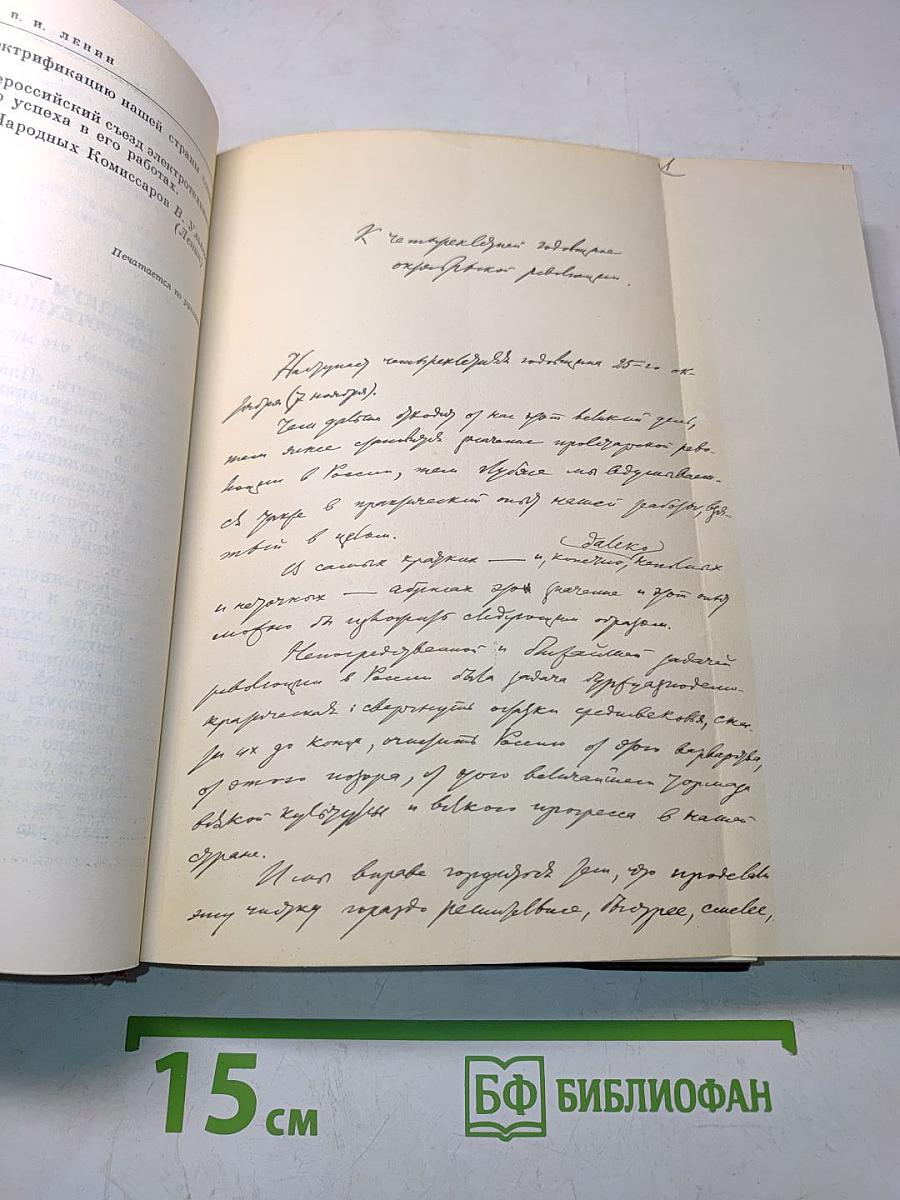 В. И. ЛЕНИН
ктрификацию нашей страны
ероссийский съезд электротехни
успеха в его работах.
Народных Комиссаров В. Улья
(Ленин)
Печатается по руко
1
К четырехлетней годовщине
октябрьской революции.
Наступает четырехлетняя годовщина 25-го ок-
тября (7 ноября).
Чем дальше отходит от нас этот великий день,
тем яснее становится значение пролетарской рево-
люции в России, тем глубже мы вдумываем-
ся также в практический опыт нашей работы, взя-
тый в целом.
далеко
В самых кратких — и, конечно, неполных
и неточных — абрисах это значение и этот опыт
можно бы изложить следующим образом.
Непосредственной и ближайшей задачей
революции в России была задача буржуазно-демо-
кратическая: свергнуть остатки средневековья, сне-
сти их до конца, очистить Россию от этого варварства,
от этого позора, от этого величайшего тормоза
всякой культуры и всякого прогресса в нашей
стране.
И мы вправе гордиться тем, что проделали
эту чистку гораздо решительнее, быстрее, смелее,
15 см
БФ БИБЛИОФАН